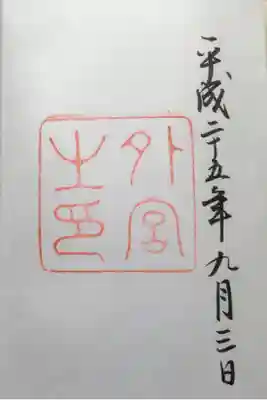 平成二十五年九月三日
外宮之印